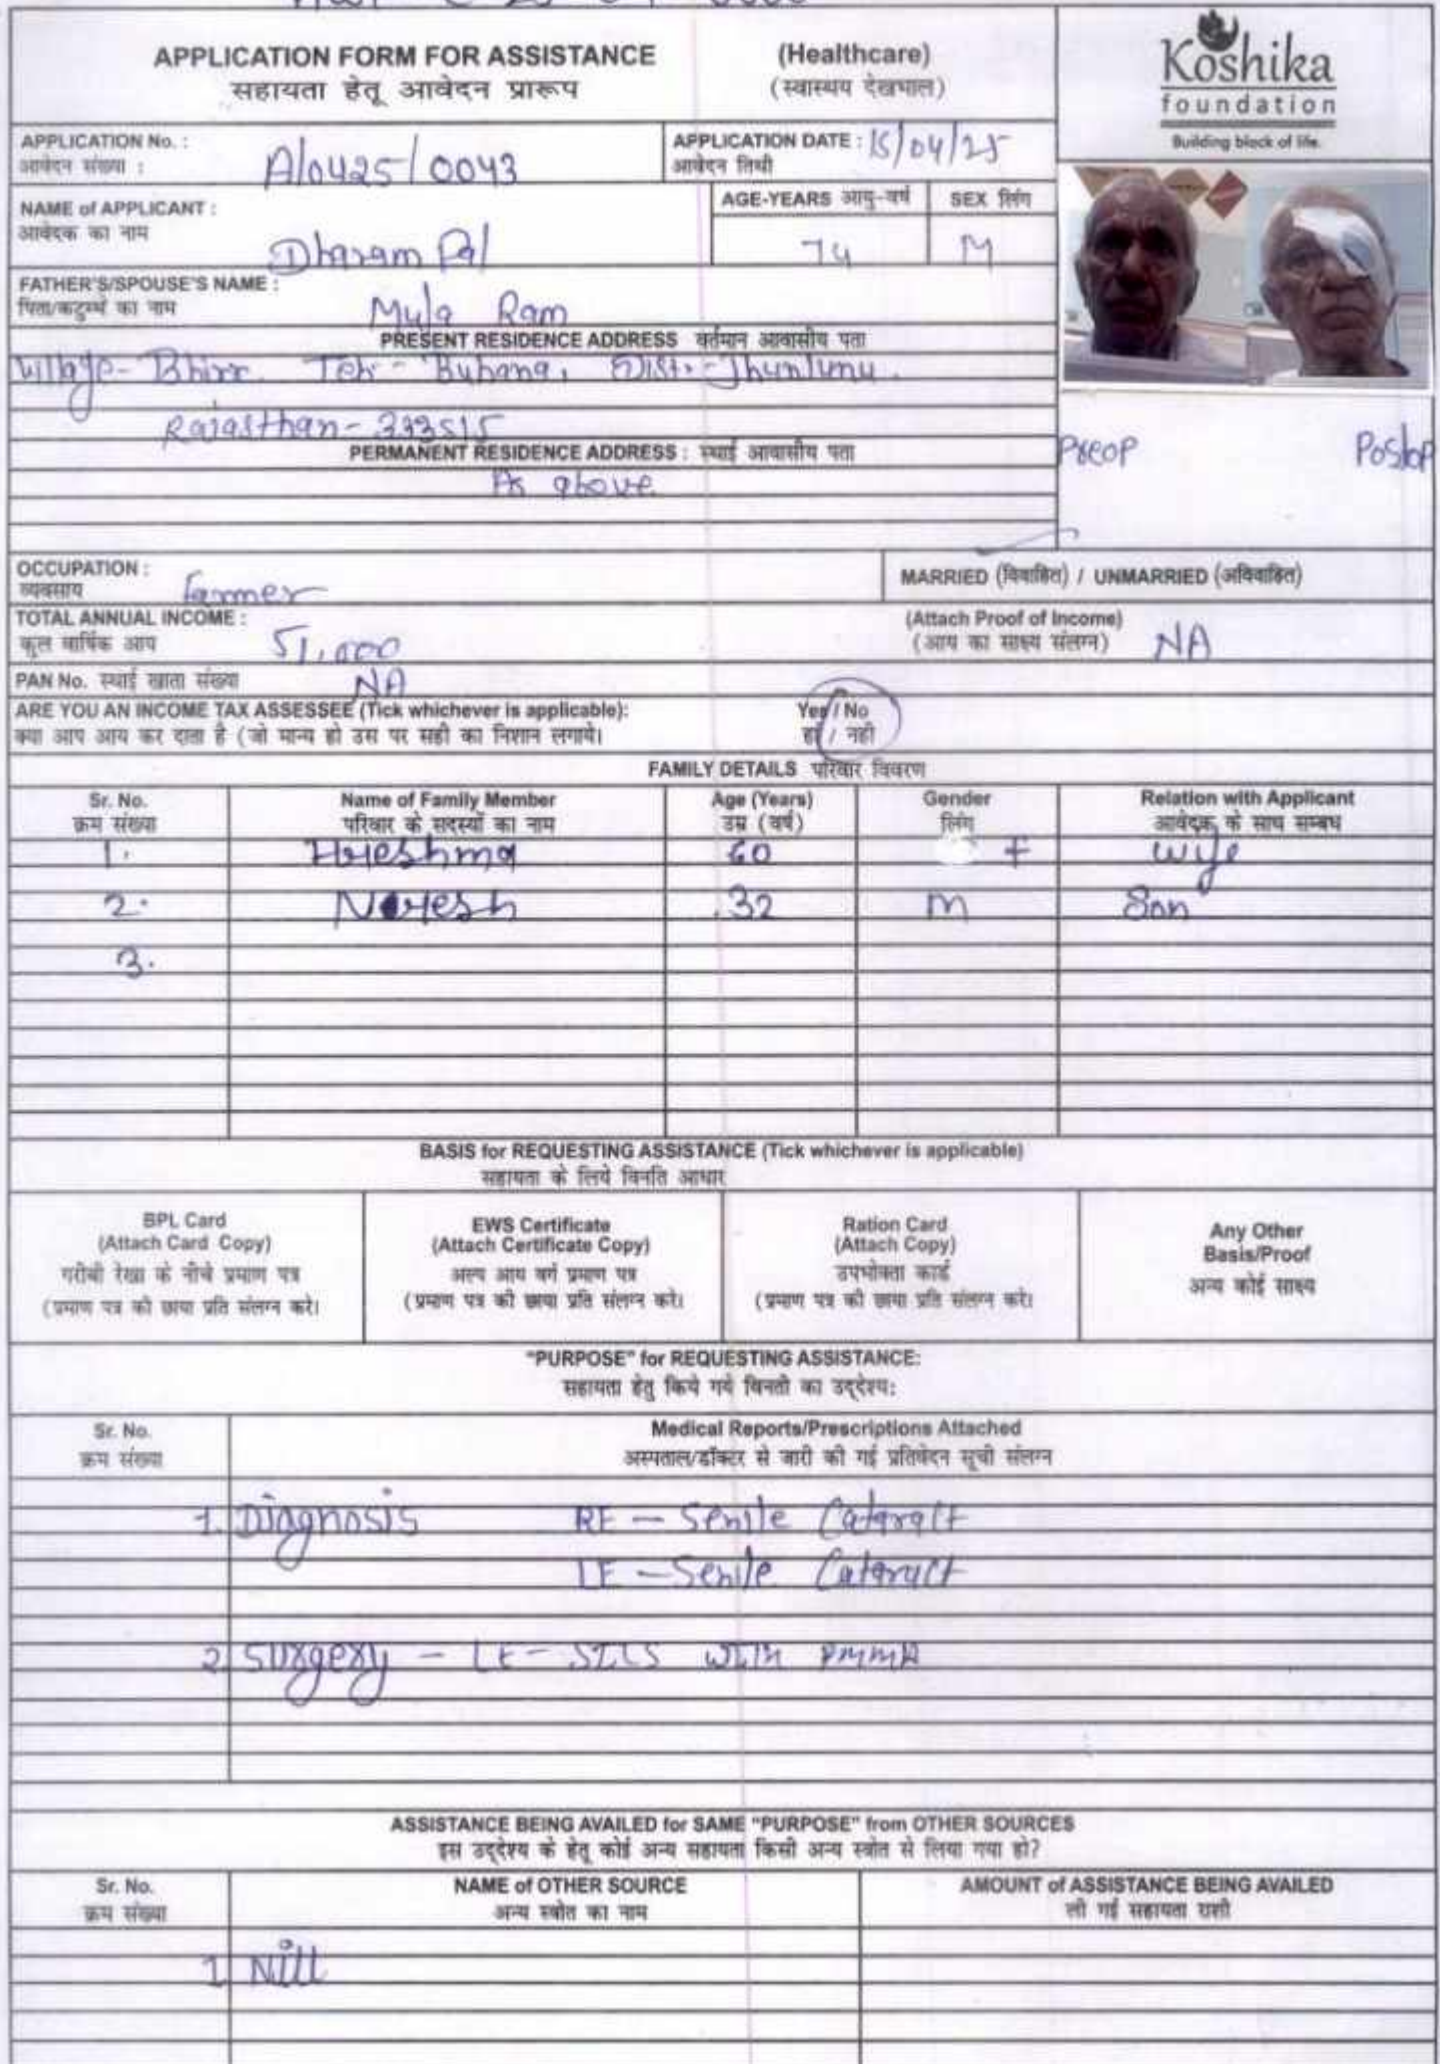 APPLICATION FORM FOR ASSISTANCE
सहायता हेतू आवेदन प्रारूप
(Healthcare)
(स्वास्थय देखभाल)
Koshika
foundation
Building block of life.
APPLICATION No. :
आवेदन संख्या :
A/0425/0043
APPLICATION DATE : 15/04/25
आवेदन तिथी
NAME of APPLICANT :
आवेदक का नाम
Dharam Pal
AGE-YEARS आयु-वर्ष
74
SEX लिंग
M
FATHER'S/SPOUSE'S NAME :
पिता/कटुम्ब का नाम
Mula Ram
PRESENT RESIDENCE ADDRESS वर्तमान आवासीय पता
Village- Teh- Buhana, Distt-
Rajasthan- 333515
Preop Postop
PERMANENT RESIDENCE ADDRESS : स्थाई आवासीय पता
As above
OCCUPATION :
व्यवसाय
farmer
MARRIED (विवाहित) / UNMARRIED (अविवाहित)
TOTAL ANNUAL INCOME :
कुल वार्षिक आय
51,000
(Attach Proof of Income)
(आय का साक्ष्य संलग्न)
NA
PAN No. स्थाई खाता संख्या
NA
ARE YOU AN INCOME TAX ASSESSEE (Tick whichever is applicable):
Yes / No
क्या आप आय कर दाता है (जो मान्य हो उस पर सही का निशान लगाये।
हा / नही
FAMILY DETAILS परिवार विवरण
Sr. No.
क्रम संख्या
Name of Family Member
परिवार के सदस्यों का नाम
Age (Years)
उम्र (वर्ष)
Gender
लिंग
Relation with Applicant
आवेदक के साथ सम्बध
1. 60 F wife
2. Naresh 32 M Son
3.
BASIS for REQUESTING ASSISTANCE (Tick whichever is applicable)
सहायता के लिये विनति आधार
BPL Card
(Attach Card Copy)
गरीबी रेखा के नीचे प्रमाण पत्र
(प्रमाण पत्र की छाया प्रति संलग्न करे।
EWS Certificate
(Attach Certificate Copy)
अल्प आय वर्ग प्रमाण पत्र
(प्रमाण पत्र की छाया प्रति संलग्न करे।
Ration Card
(Attach Copy)
उपभोक्ता कार्ड
(प्रमाण पत्र की छाया प्रति संलग्न करे।
Any Other
Basis/Proof
अन्य कोई साक्ष्य
"PURPOSE" for REQUESTING ASSISTANCE:
सहायता हेतु किये गये विनती का उद्देश्य:
Sr. No.
क्रम संख्या
Medical Reports/Prescriptions Attached
अस्पताल/डॉक्टर से जारी की गई प्रतिवेदन सूची संलग्न
1. Diagnosis RE - Senile Cataract
LE - Senile Cataract
2 Surgery - LE - SICS with PMMA
ASSISTANCE BEING AVAILED for SAME "PURPOSE" from OTHER SOURCES
इस उद्देश्य के हेतू कोई अन्य सहायता किसी अन्य स्त्रोत से लिया गया हो?
Sr. No.
क्रम संख्या
NAME of OTHER SOURCE
अन्य स्त्रोत का नाम
AMOUNT of ASSISTANCE BEING AVAILED
ली गई सहायता राशी
1 Nill